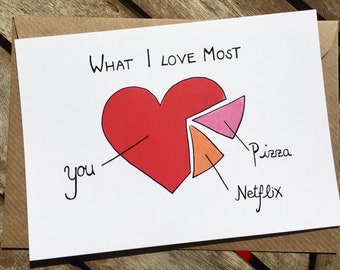 WHAT I LOVE MOST
you
Pizza
Netflix